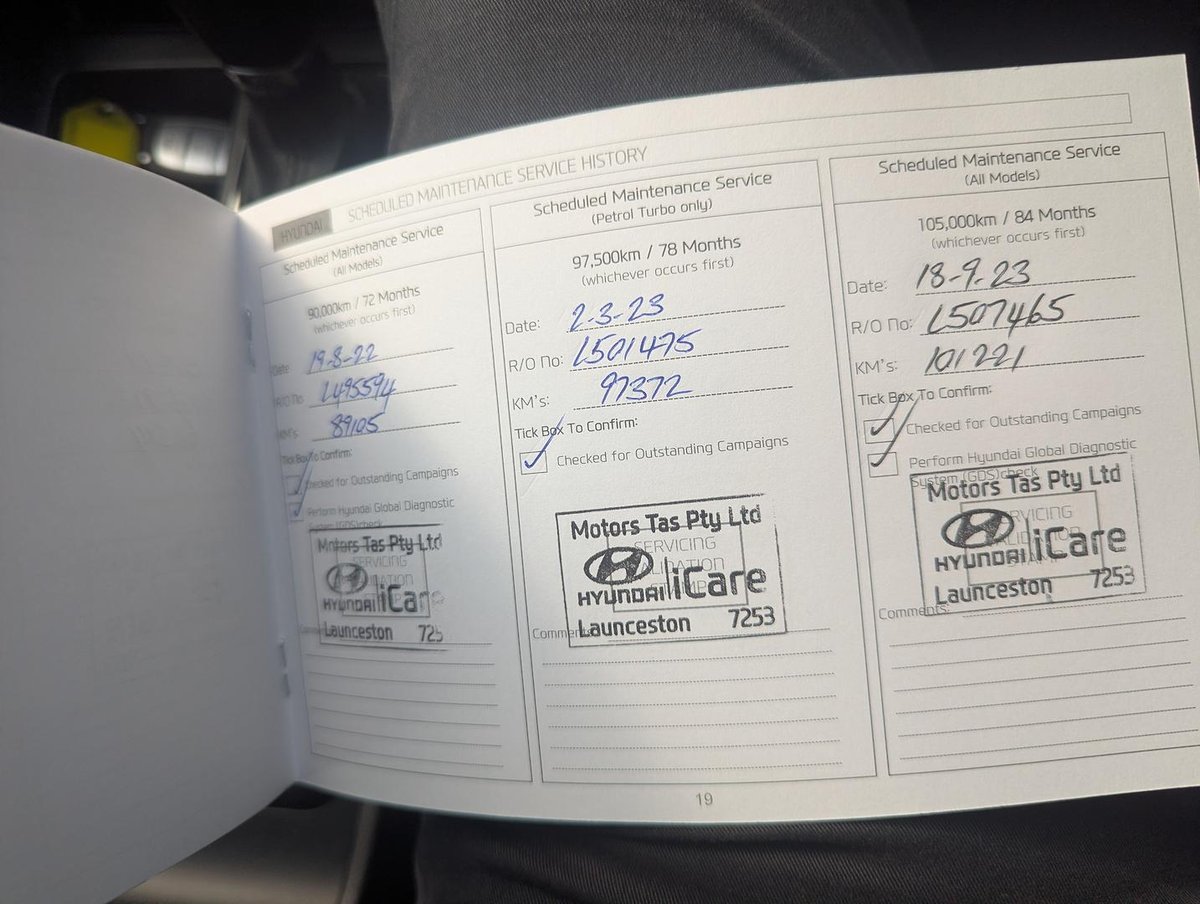 HYUNDAI SCHEDULED MAINTENANCE SERVICE HISTORY
Scheduled Maintenance Service
(All Models)
90,000km / 72 Months
(whichever occurs first)
Date 19-8-22
R/O No L495594
KM's 89105
Tick Box To Confirm:
Checked for Outstanding Campaigns
Perform Hyundai Global Diagnostic
System (GDS)check
Motors Tas Pty Ltd
SERVICING
HYUNDAI iCare
Launceston 725
Scheduled Maintenance Service
(Petrol Turbo only)
97,500km / 78 Months
(whichever occurs first)
Date: 2-3-23
R/O No: L501475
KM's: 97372
Tick Box To Confirm:
Checked for Outstanding Campaigns
Motors Tas Pty Ltd
SERVICING
HYUNDAI iCare
Launceston 7253
Comments
Scheduled Maintenance Service
(All Models)
105,000km / 84 Months
(whichever occurs first)
Date: 18-9-23
R/O No: L507465
KM's: 101221
Tick Box To Confirm:
Checked for Outstanding Campaigns
Perform Hyundai Global Diagnostic
System (GDS)check
Motors Tas Pty Ltd
HYUNDAI iCare
Launceston 7253
Comments:
19